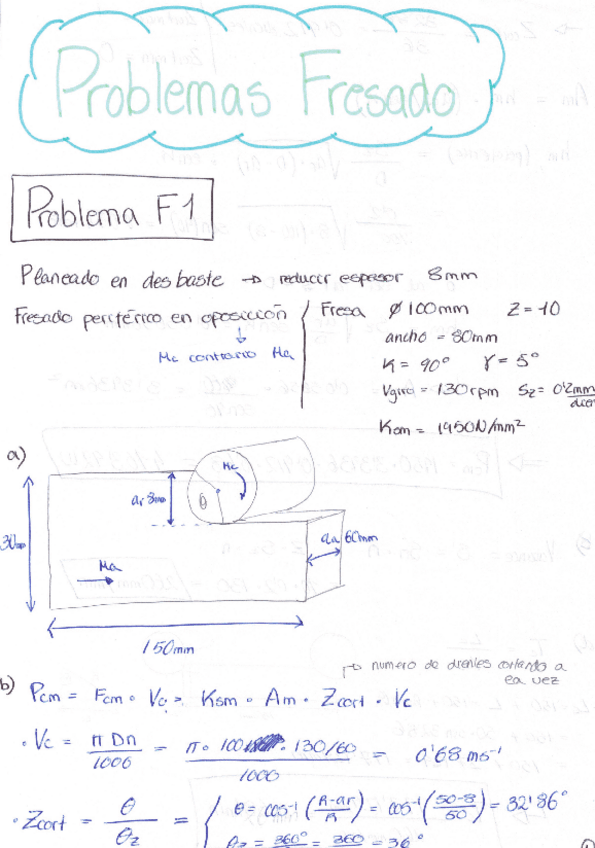 Problemas Fresado
Problema F1
Planeado en desbaste → reducir espesor 8mm
Fresado periférico en oposición
↓
Mc contrario Ma
Fresa ∅100mm Z=10
ancho = 80mm
K = 90° γ = 5°
Vgiro = 130rpm Sz = 0'2mm/
Ksm = 1950N/mm²
a)
Mc
θ
ar 8mm
30mm
aa 60mm
Ma
150mm
→ numero de dientes cortando a
ea vez
b) Pcm = Fcm · Vc = Ksm · Am · Zcort · Vc
· Vc = πDn/1000 = π · 100 · 130/60 / 1000 = 0'68 ms⁻¹
· Zcort = θ/θz = { θ = cos⁻¹((R-ar)/R) = cos⁻¹((50-8)/50) = 32'86°
θz = 360°/ = 360/ = 36°